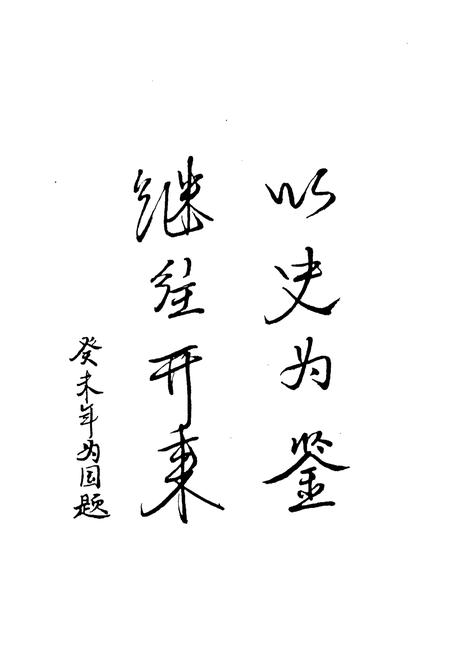 以史为鉴
继往开来
癸未年为国题